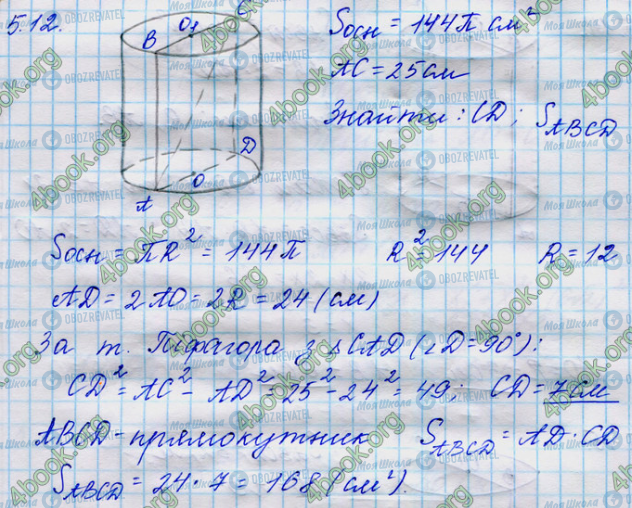 5.12.
O₁ C
B
D
O
A
Sосн = 144π см²
AC = 25 см
Знайти: CD; S_ABCD
Sосн = πR² = 144π R² = 144 R = 12
AD = 2AO = 2R = 24 (см)
За т. Піфагора з △CAD (∠D = 90°):
CD² = AC² - AD² = 25² - 24² = 49; CD = 7 см
ABCD - прямокутник S_ABCD = AD · CD
S_ABCD = 24 · 7 = 168 (см²).
4book.org
Моя Школа
OBOZREVATEL